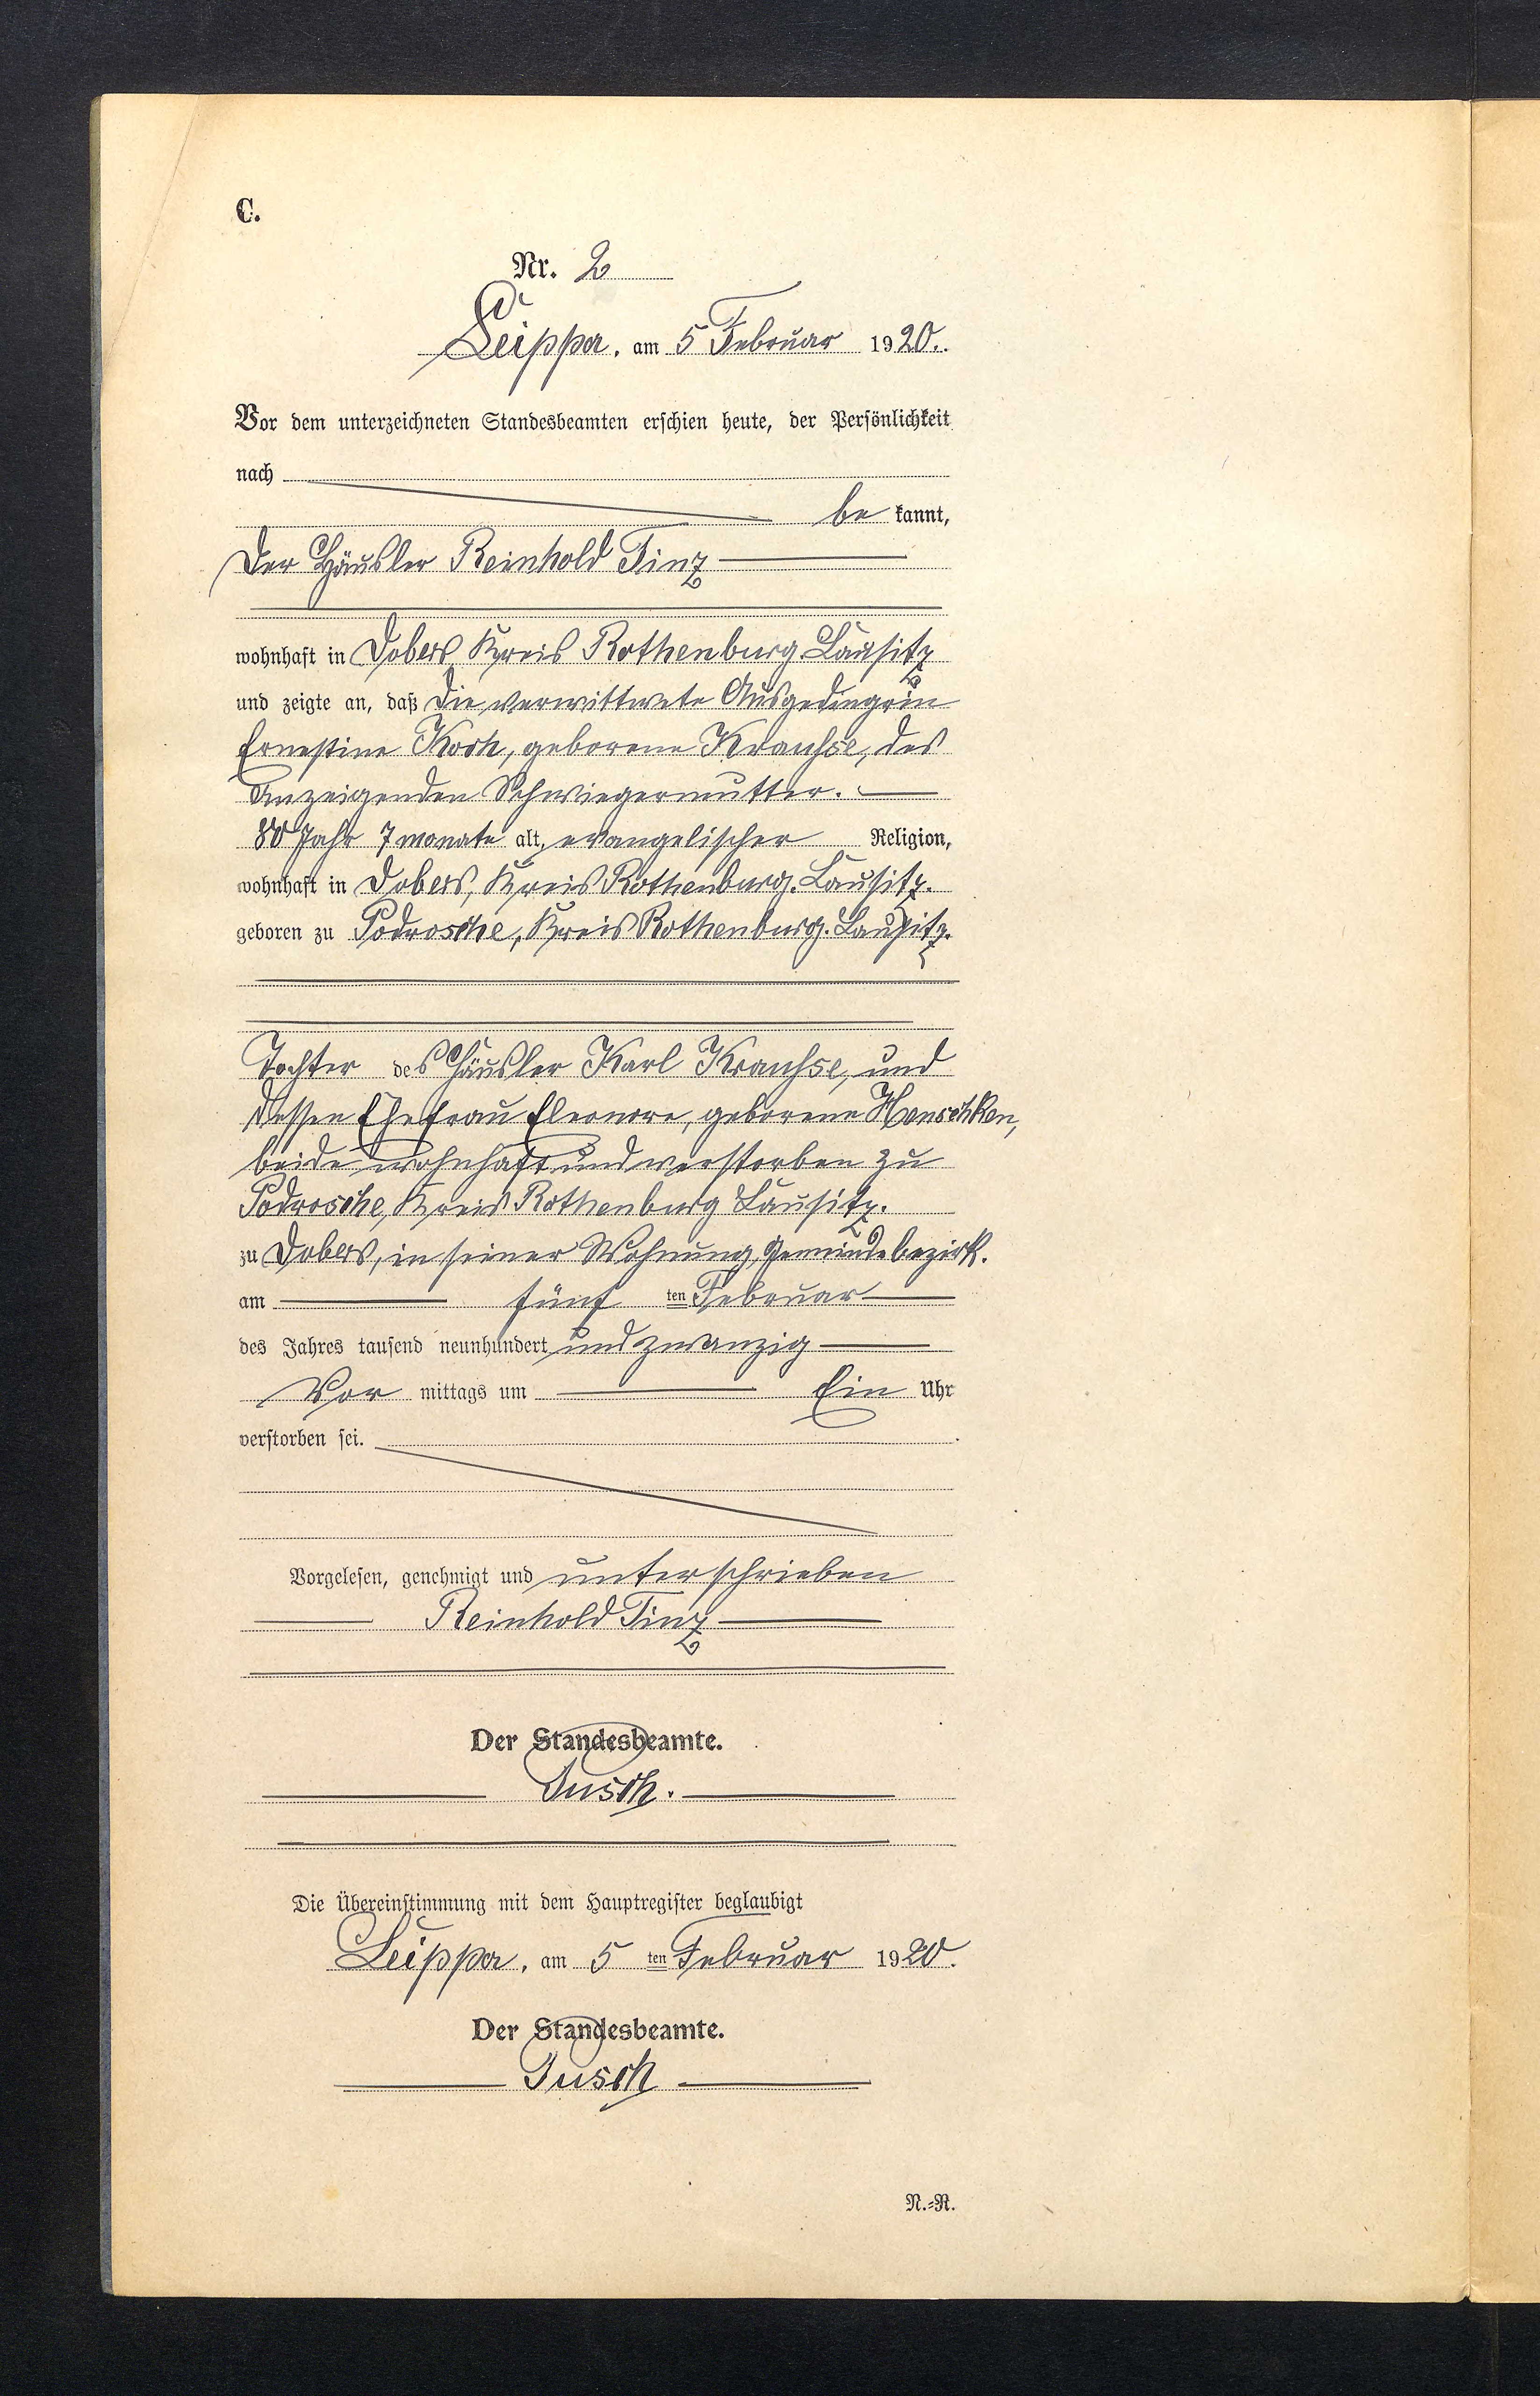 C.
Nr. 2
Leippa, am 5 Februar 1920.
Vor dem unterzeichneten Standesbeamten erschien heute, der Persönlichkeit
nach
be kannt,
der Häusler Reinhold Tinz
wohnhaft in Dobers, Kreis Rothenburg. Lausitz
und zeigte an, daß die verwittwete Ausgedingrin
Ernestine Koch, geborene Krauhse, des
Anzeigenden Schwiegermutter.
80 Jahr 7 monate alt, evangelischer Religion,
wohnhaft in Dobers, Kreis Rothenburg. Lausitz.
geboren zu Podrosche, Kreis Rothenburg. Lausitz.
Tochter des Häusler Karl Krauhse, und
dessen Ehefrau Eleonore, geborene Henschken,
beide wohnhaft und verstorben zu
Podrosche, Kreis Rothenburg Lausitz.
zu Dobers, in seiner Wohnung, Gemeindebezirk.
am fünf ten Februar
des Jahres tausend neunhundert und zwanzig
Vor mittags um Ein Uhr
verstorben sei.
Vorgelesen, genehmigt und unterschrieben
Reinhold Tinz
Der Standesbeamte.
Jusch.
Die Übereinstimmung mit dem Hauptregister beglaubigt
Leippa, am 5 ten Februar 1920.
Der Standesbeamte.
Jusch
N.=R.